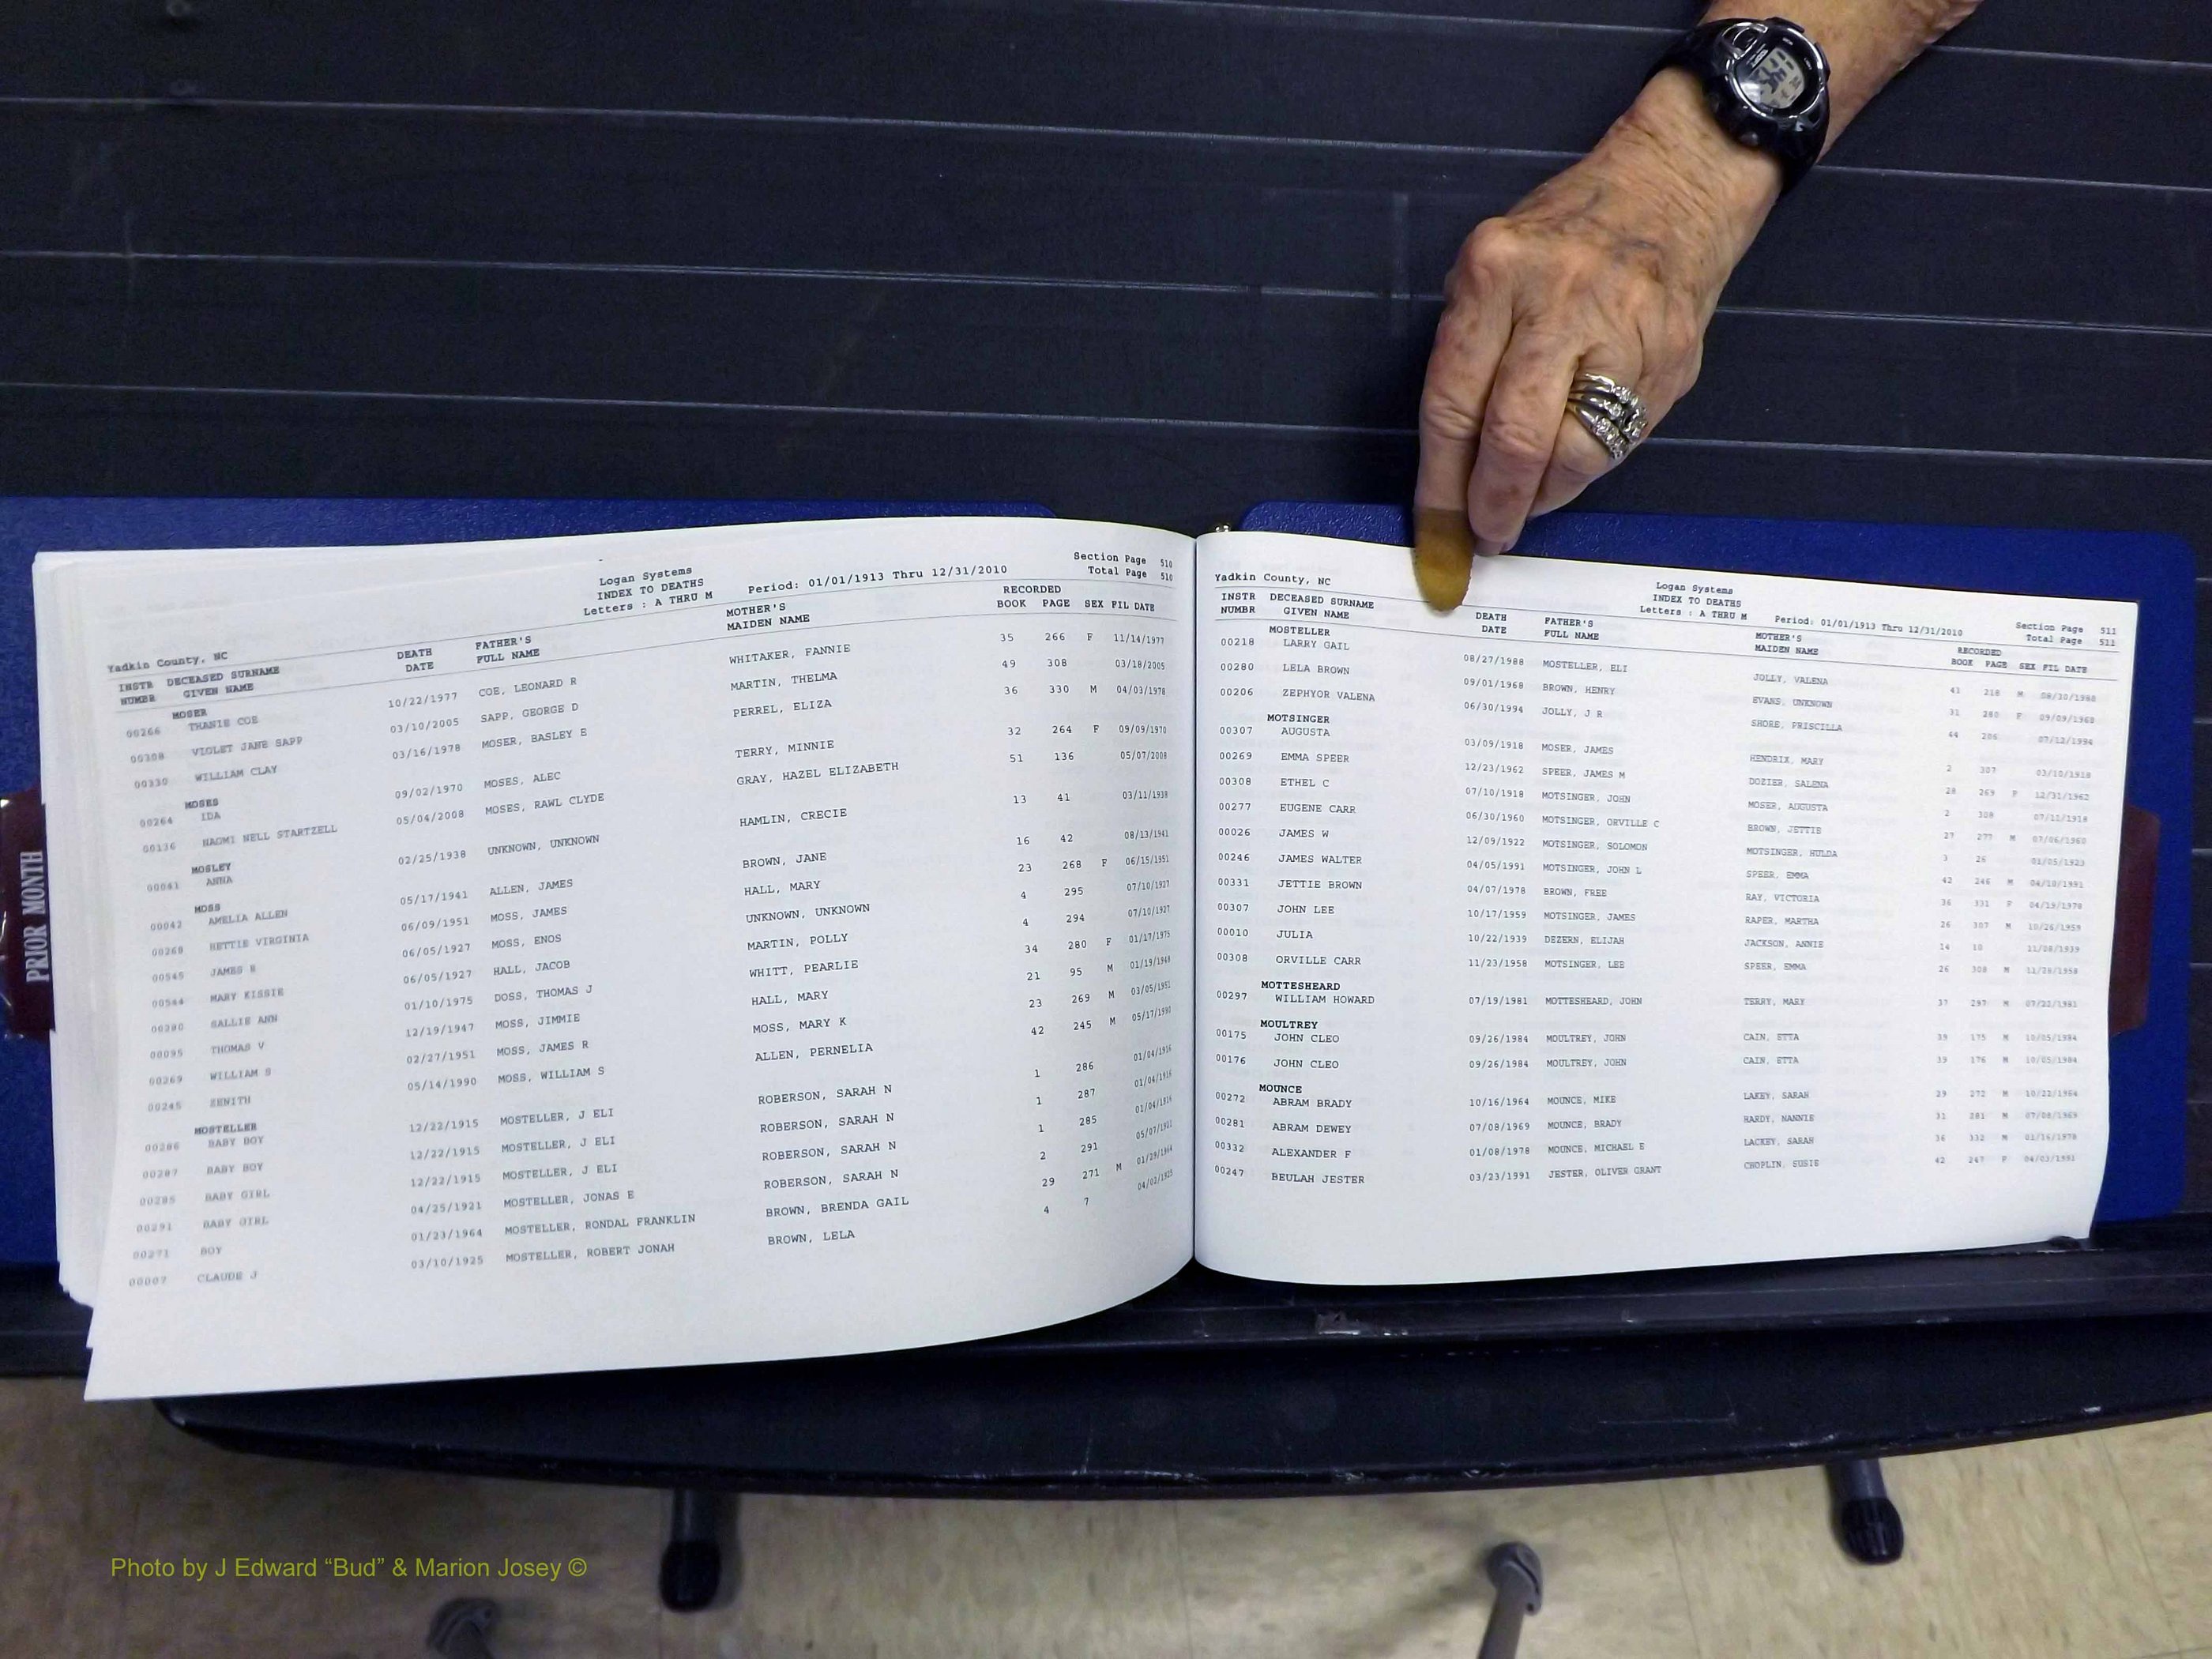 Logan Systems
INDEX TO DEATHS
Letters : A THRU M Period: 01/01/1913 Thru 12/31/2010
Section Page 510
Total Page 510
Yadkin County, NC
INSTR DECEASED SURNAME DEATH FATHER'S MOTHER'S RECORDED
NUMBR GIVEN NAME DATE FULL NAME MAIDEN NAME BOOK PAGE SEX FIL DATE
MOSER
00266 THANIE COE 10/22/1977 COE, LEONARD R WHITAKER, FANNIE 35 266 F 11/14/1977
00308 VIOLET JANE SAPP 03/10/2005 SAPP, GEORGE D MARTIN, THELMA 49 308 03/18/2005
00330 WILLIAM CLAY 03/16/1978 MOSER, BASLEY E PERREL, ELIZA 36 330 M 04/03/1978
MOSES
00264 IDA 09/02/1970 MOSES, ALEC TERRY, MINNIE 32 264 F 09/09/1970
00136 NAOMI NELL STARTZELL 05/04/2008 MOSES, RAWL CLYDE GRAY, HAZEL ELIZABETH 51 136 05/07/2008
MOSLEY
00041 ANNA 02/25/1938 UNKNOWN, UNKNOWN HAMLIN, CRECIE 13 41 03/11/1938
MOSS
00042 AMELIA ALLEN 05/17/1941 ALLEN, JAMES BROWN, JANE 16 42 08/13/1941
00268 BETTIE VIRGINIA 06/09/1951 MOSS, JAMES HALL, MARY 23 268 F 06/15/1951
JAMES 06/05/1927 MOSS, ENOS UNKNOWN, UNKNOWN 4 295 07/10/1927
MARY KISSIE 06/05/1927 HALL, JACOB MARTIN, POLLY 4 294 07/10/1927
00280 SALLIE ANN 01/10/1975 DOSS, THOMAS J WHITT, PEARLIE 34 280 F 01/17/1975
00095 THOMAS V 12/19/1947 MOSS, JIMMIE HALL, MARY 21 95 M 01/19/1948
00269 WILLIAM S 02/27/1951 MOSS, JAMES R MOSS, MARY K 23 269 M 03/05/1951
00245 ZENITH 05/14/1990 MOSS, WILLIAM S ALLEN, PERNELIA 42 245 M 05/17/1990
MOSTELLER
00286 BABY BOY 12/22/1915 MOSTELLER, J ELI ROBERSON, SARAH N 1 286 01/04/1916
00287 BABY BOY 12/22/1915 MOSTELLER, J ELI ROBERSON, SARAH N 1 287 01/04/1916
00285 BABY GIRL 12/22/1915 MOSTELLER, J ELI ROBERSON, SARAH N 1 285 01/04/1916
00291 BABY GIRL 04/25/1921 MOSTELLER, JONAS E ROBERSON, SARAH N 2 291 05/07/1921
00271 BOY 01/23/1964 MOSTELLER, RONDAL FRANKLIN BROWN, BRENDA GAIL 29 271 M 01/29/1964
00007 CLAUDE J 03/10/1925 MOSTELLER, ROBERT JONAH BROWN, LELA 4 7 04/02/1925
Logan Systems
INDEX TO DEATHS
Letters : A THRU M Period: 01/01/1913 Thru 12/31/2010
Section Page 511
Total Page 511
Yadkin County, NC
INSTR DECEASED SURNAME DEATH FATHER'S MOTHER'S RECORDED
NUMBR GIVEN NAME DATE FULL NAME MAIDEN NAME BOOK PAGE SEX FIL DATE
MOSTELLER
00218 LARRY GAIL 08/27/1988 MOSTELLER, ELI JOLLY, VALENA 41 218 M 08/30/1988
00280 LELA BROWN 09/01/1968 BROWN, HENRY EVANS, UNKNOWN 31 280 F
00206 ZEPHYOR VALENA 06/30/1994 JOLLY, J R SHORE, PRISCILLA 44 206 07/12/1994
MOTSINGER
00307 AUGUSTA 03/09/1918 MOSER, JAMES HENDRIX, MARY 2 307 03/10/1918
00269 EMMA SPEER 12/23/1962 SPEER, JAMES M DOZIER, SALENA 28 269 F 12/31/1962
00308 ETHEL C 07/10/1918 MOTSINGER, JOHN MOSER, AUGUSTA 2 308
00277 EUGENE CARR 06/30/1960 MOTSINGER, ORVILLE C BROWN, JETTIE 27 277 M 07/06/1960
00026 JAMES W 12/09/1922 MOTSINGER, SOLOMON MOTSINGER, HULDA 3 26 01/05/1923
00246 JAMES WALTER 04/05/1991 MOTSINGER, JOHN L SPEER, EMMA 42 246 M 04/10/1991
00331 JETTIE BROWN 04/07/1978 BROWN, FREE RAY, VICTORIA 36 331 F
00307 JOHN LEE 10/17/1959 MOTSINGER, JAMES RAPER, MARTHA 26 307 M 10/26/1959
00010 JULIA 10/22/1939 DEZERN, ELIJAH JACKSON, ANNIE 14 10 11/08/1939
00308 ORVILLE CARR 11/23/1958 MOTSINGER, LEE SPEER, EMMA 26 308 M 11/28/1958
MOTTESHEARD
00297 WILLIAM HOWARD 07/19/1981 MOTTESHEARD, JOHN TERRY, MARY 37 297 M 07/22/1981
MOULTREY
00175 JOHN CLEO 09/26/1984 MOULTREY, JOHN CAIN, ETTA 39 175 M 10/05/1984
00176 JOHN CLEO 09/26/1984 MOULTREY, JOHN CAIN, ETTA 39 176 M 10/05/1984
MOUNCE
00272 ABRAM BRADY 10/16/1964 MOUNCE, MIKE LAKEY, SARAH 29 272 M 10/22/1964
00281 ABRAM DEWEY 07/08/1969 MOUNCE, BRADY HARDY, NANNIE 31 281 M 07/08/1969
00332 ALEXANDER F 01/08/1978 MOUNCE, MICHAEL E LACKEY, SARAH 36 332 M 01/16/1978
00247 BEULAH JESTER 03/23/1991 JESTER, OLIVER GRANT CHOPLIN, SUSIE 42 247 F 04/03/1991
PRIOR MONTH
Photo by J Edward “Bud” & Marion Josey ©